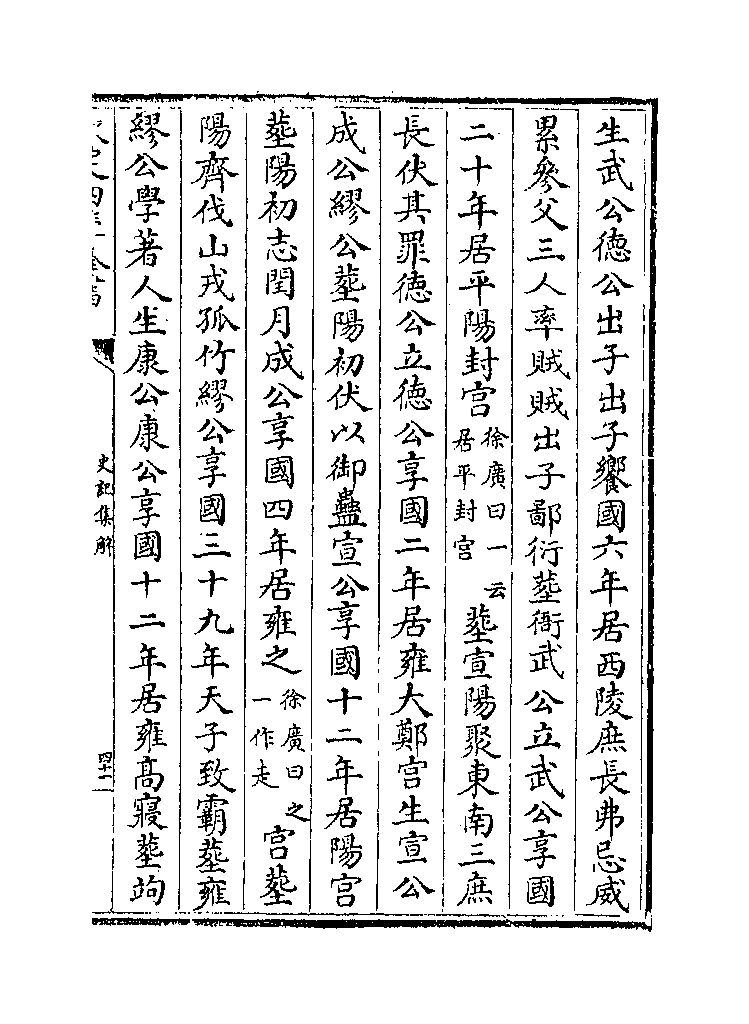 生武公徳公出子出子饗國六年居西陵庶長弗忌威
累參父三人率賊賊出子鄙衍塟衙武公立武公享國
二十年居平陽封宫徐廣曰一云居平封宫塟宣陽聚東南三庶
長伏其罪徳公立徳公享國二年居雍大鄭宫生宣公
成公繆公塟陽初伏以御蠱宣公享國十二年居陽宫
塟陽初志閏月成公享國四年居雍之徐廣曰之一作走宫塟
陽齊伐山戎孤竹繆公享國三十九年天子致霸塟雍
繆公學著人生康公康公享國十二年居雍髙寢塟竘
史記集解
四十一